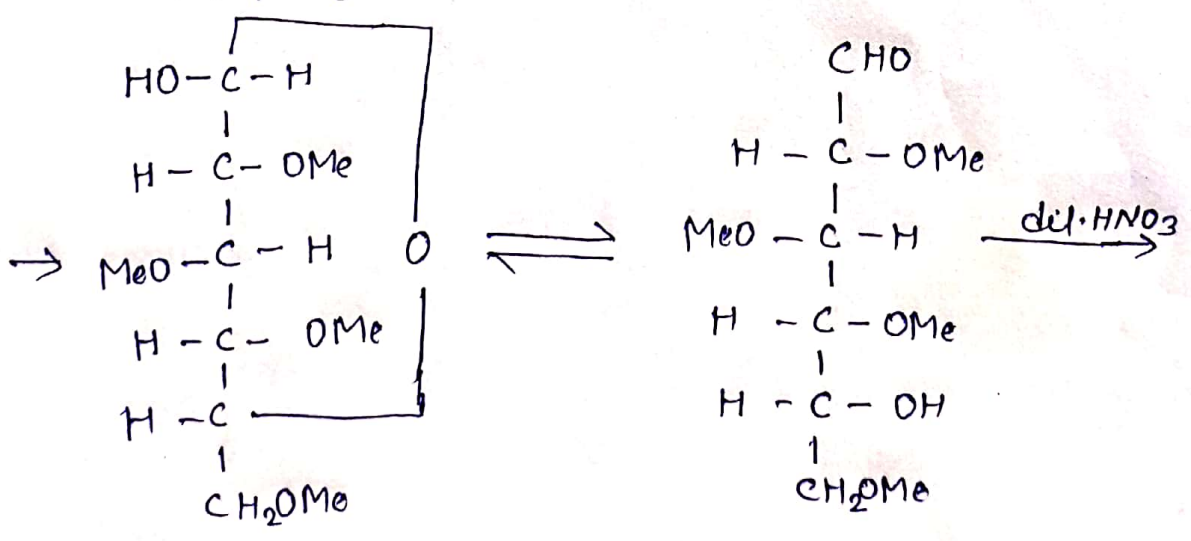 HO-C-H
H-C-OMe
→ MeO-C-H O ⇌
H-C-OMe
H-C
CH₂OMe
CHO
H-C-OMe
MeO-C-H dil·HNO3 →
H-C-OMe
H-C-OH
CH₂OMe